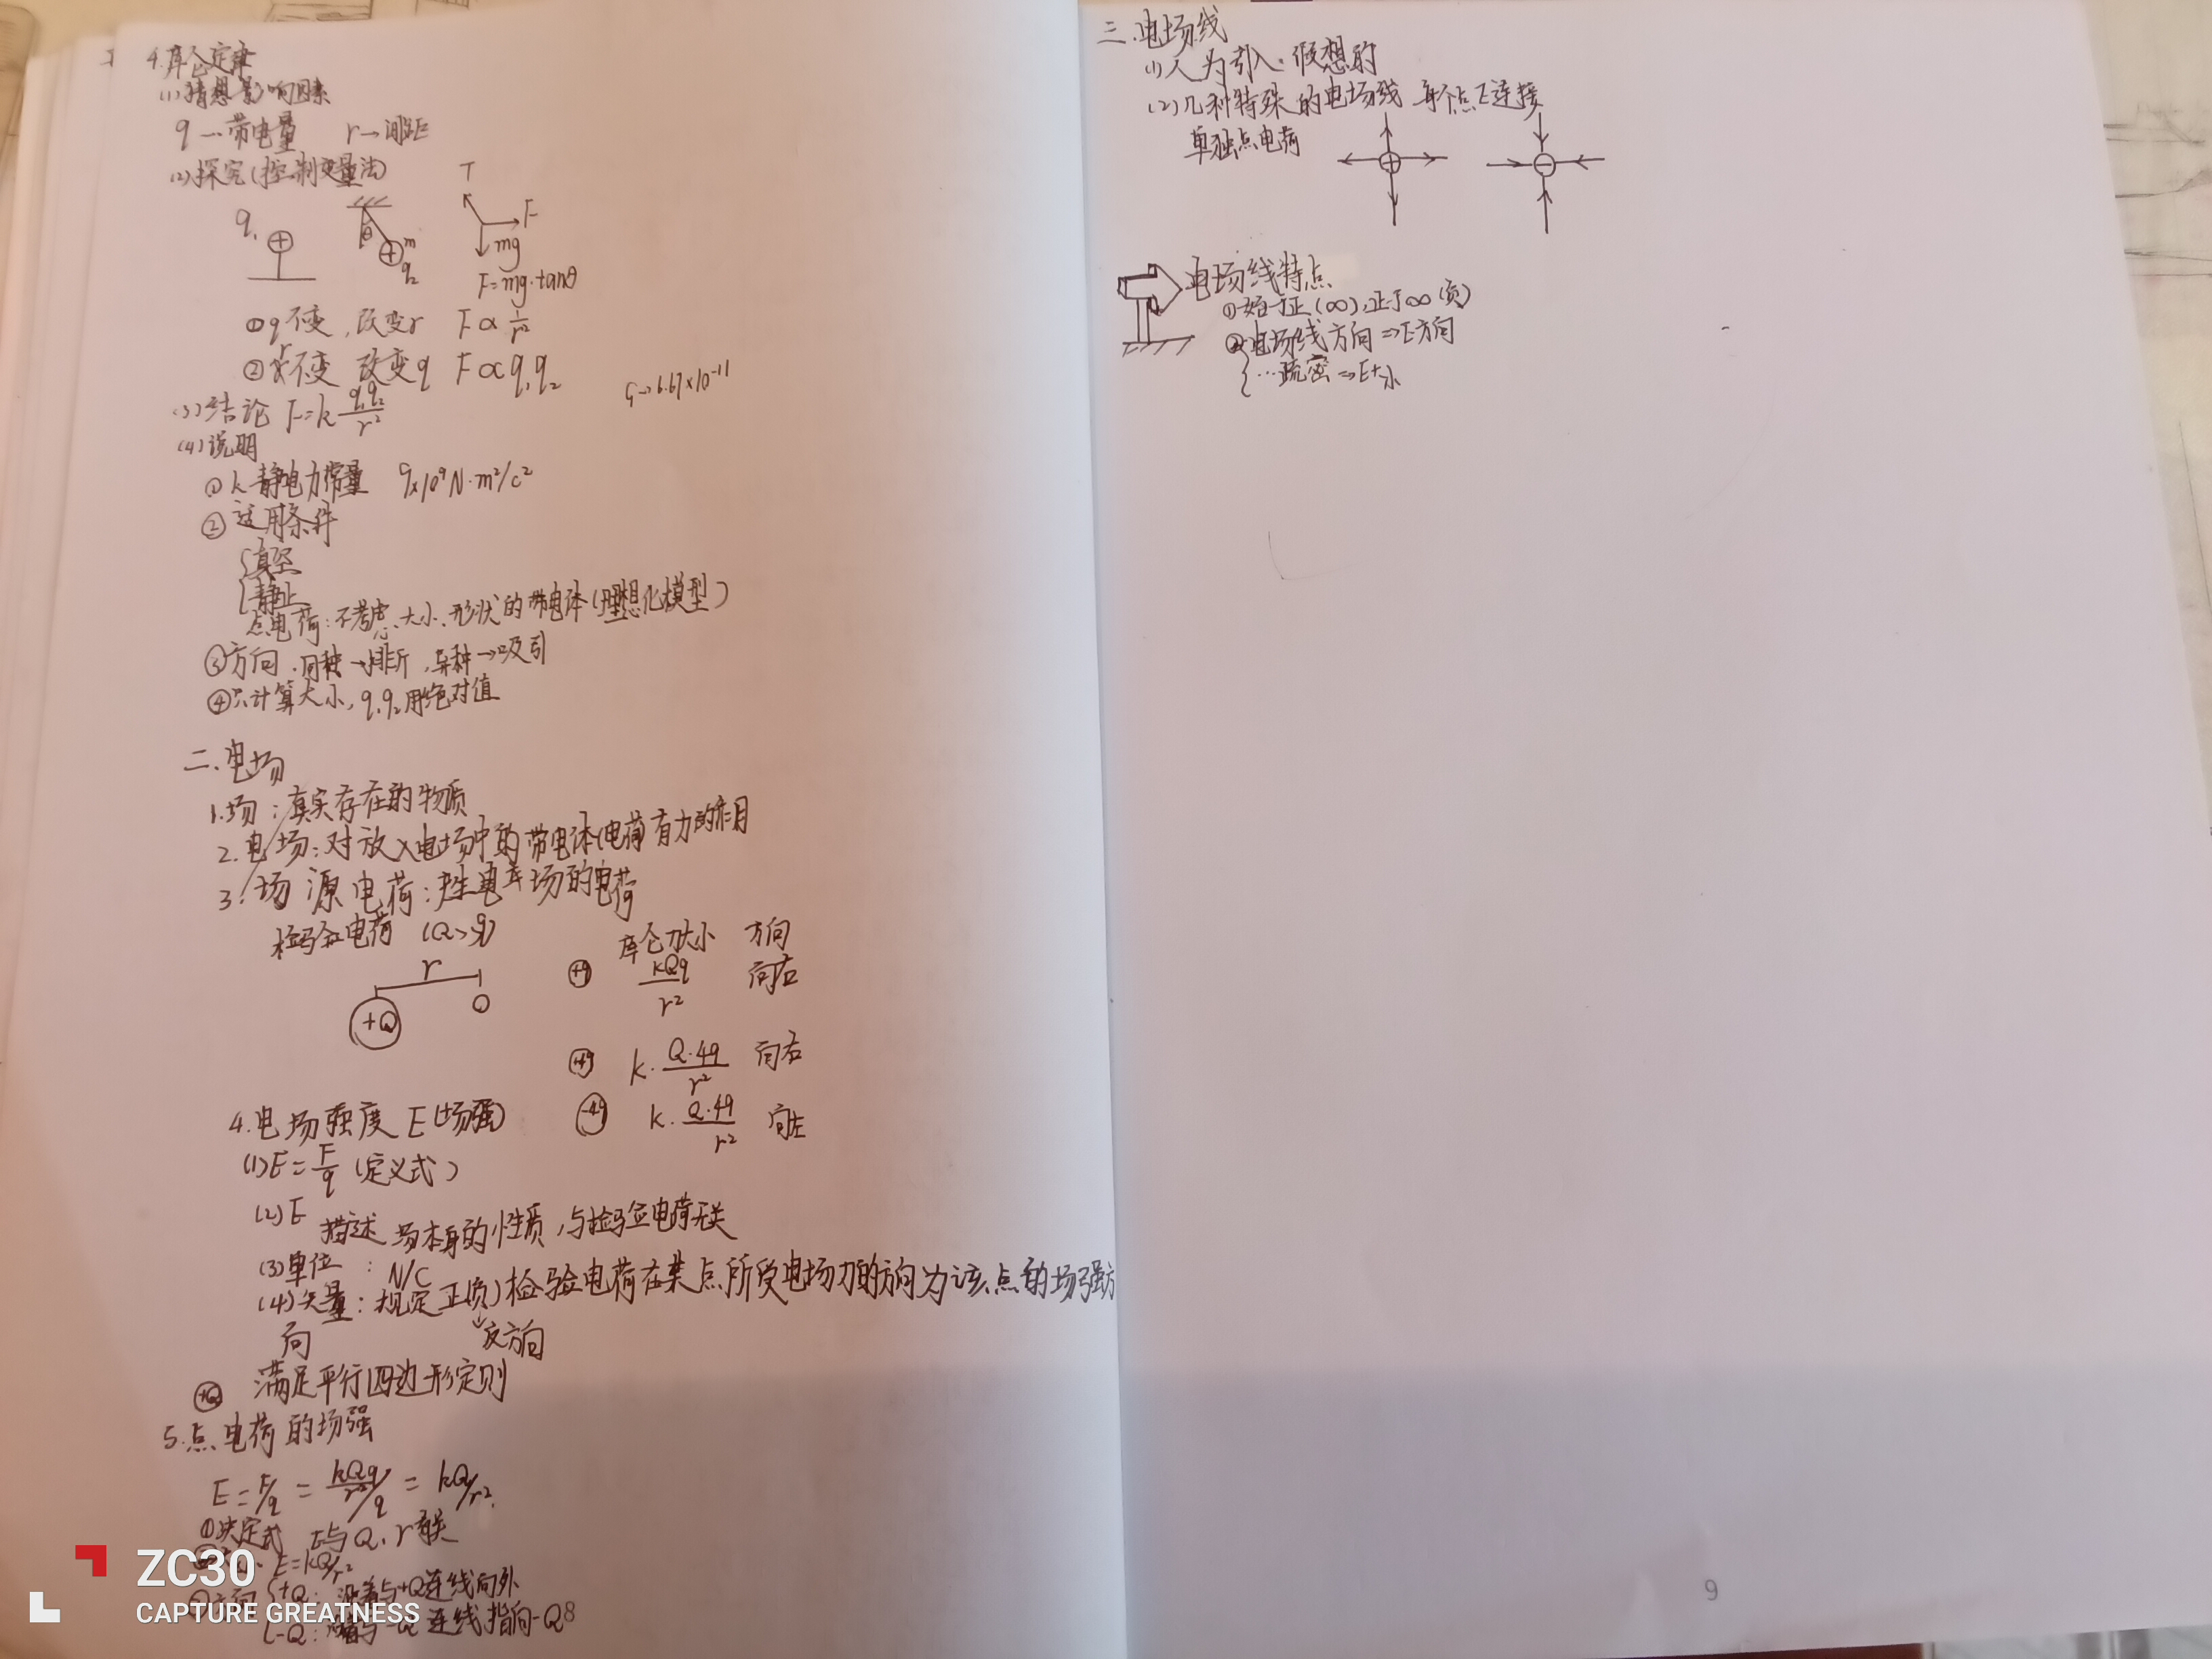 4.库仑定律
(1)猜想影响因素
q→带电量 r→间距
(2)探究(控制变量法)
T
F
mg
q₁
θ
m
q₂
F=mg·tanθ
①q不变,改变r F∝1/r²
②r不变 改变q F∝q₁q₂
G→6.67×10⁻¹¹
(3)结论 F=k q₁q₂/r²
(4)说明
①k静电力常量 9×10⁹N·m²/c²
②适用条件
真空
静止
点电荷:不考虑大小、形状的带电体(理想化模型)
③方向.同种→排斥,异种→吸引
④只计算大小,q₁q₂用绝对值
二.电场
1.场:真实存在的物质
2.电场:对放入电场中的带电体(电荷)有力的作用
3.场源电荷:产生电场的电荷
检验电荷 (Q>q)
库仑力大小 方向
r
+Q
+q kQq/r² 向右
+4q k·Q·4q/r² 向右
-4q k·Q·4q/r² 向左
4.电场强度 E(场强)
(1)E=F/q (定义式)
(2)E 描述场本身的性质,与检验电荷无关
(3)单位:N/C
(4)矢量:规定正(负)检验电荷在某点所受电场力的方向为该点的场强方
向
反方向
满足平行四边形定则
+Q
5.点电荷的场强
E=F/q=kQq/r²/q=kQ/r²
①决定式 E与Q、r有关
E=kQ/r²
方向 +Q:沿着与+Q连线向外
-Q:沿着与-Q连线指向-Q
8
ZC30
CAPTURE GREATNESS
三.电场线
(1)人为引入.假想的
(2)几种特殊的电场线 每个点E连接
单独点电荷
+
−
电场线特点
①始于正(∞),止于∞(负)
②电场线方向⇒E方向
…疏密⇒E大小
9